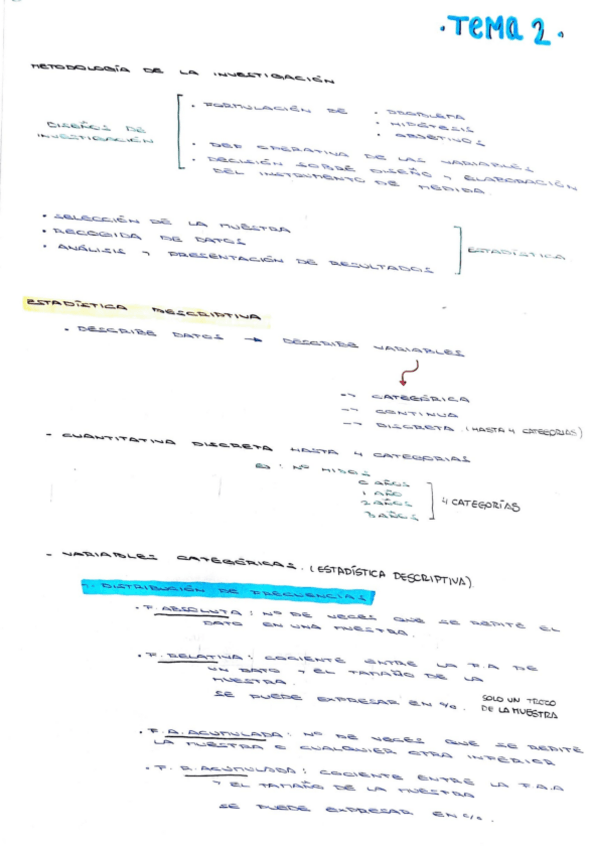 · TEMA 2 ·
METODOLOGÍA DE LA INVESTIGACIÓN
DISEÑOS DE INVESTIGACIÓN
· FORMULACIÓN DE · PROBLEMA
· HIPÓTESIS
· OBJETIVOS
· DEF OPERATIVA DE LAS VARIABLES
· DECISIÓN SOBRE DISEÑO Y ELABORACIÓN
DEL INSTRUMENTO DE MEDIDA.
· SELECCIÓN DE LA MUESTRA
· RECOGIDA DE DATOS
· ANÁLISIS Y PRESENTACIÓN DE RESULTADOS
ESTADÍSTICA
ESTADÍSTICA DESCRIPTIVA
· DESCRIBE DATOS → DESCRIBE VARIABLES
--> CATEGÓRICA
--> CONTINUA
--> DISCRETA (HASTA 4 CATEGORÍAS)
- CUANTITATIVA DISCRETA HASTA 4 CATEGORIAS
: Nº HIJOS
0 AÑOS
1 AÑO
2 AÑOS
3 AÑOS
4 CATEGORÍAS
- VARIABLES CATEGÓRICAS. (ESTADÍSTICA DESCRIPTIVA)
1. DISTRIBUCIÓN DE FRECUENCIAS
· F. ABSOLUTA : Nº DE VECES QUE SE REPITE EL
DATO EN UNA MUESTRA.
· F. RELATIVA : COCIENTE ENTRE LA F.A DE
UN DATO Y EL TAMAÑO DE LA
MUESTRA.
SE PUEDE EXPRESAR EN %.
SOLO UN TROZO
DE LA MUESTRA
· F. A. ACUMULADA : Nº DE VECES QUE SE REPITE
LA MUESTRA O CUALQUIER OTRA INFERIOR
· F. R. ACUMULADA : COCIENTE ENTRE LA F.A.A
Y EL TAMAÑO DE LA MUESTRA
SE PUEDE EXPRESAR EN %.